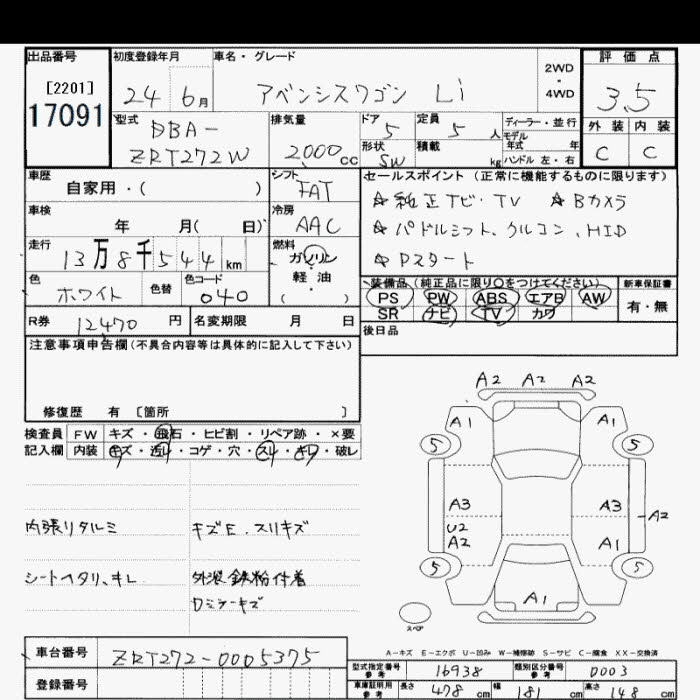 出品番号
[2201]
17091
初度登録年月
24 6月
車名・グレード
アベンシスワゴン Li
2WD
・
4WD
評価点
3.5
外装 内装
C C
型式
DBA-
ZRT272W
排気量
2000cc
ドア
5
形状
SW
定員
5人
積載
kg
ディーラー・並行
モデル
年式 年
ハンドル 左・右
車歴
自家用・( )
シフト
FAT
車検
年 月( 日)
冷房
AAC
走行
13万8千544km
燃料
ガソリン
軽油
( ・ )
色
ホワイト
色替
色コード
040
セールスポイント(正常に機能するものに限ります)
☆純正ナビ・TV ☆Bカメラ
☆パドルシフト、クルコン、HID
☆Pスタート
装備品(純正品に限り○をつけてください)
PS PW ABS エアB AW
SR ナビ TV カワ
新車保証書
有・無
後日品
R券 12470円
名変期限 月 日
注意事項申告欄(不具合内容等は具体的に記入して下さい)
修復歴 有 [箇所 ]
検査員 FW キズ・飛石・ヒビ割・リペア跡・×要
記入欄 内装 キズ・汚レ・コゲ・穴・スレ・キレ・破レ
内張リタルミ キズE、スリキズ
シートヘタリ、キレ 外装鉄粉付着
Dミラーキズ
A2 A2 A2
A1 A1
5 5
A3 A3 A2
U2
A2 A1
5 5
A1
スペア
A-キズ E-エクボ U-凹み W-補修跡 S-サビ C-腐食 XX-交換済
車台番号 ZRT272-0005375
登録番号
型式指定番号
参考
16938
類別区分番号
参考
0003
車庫証明用
参考
長さ 478cm 幅 181cm 高さ 148cm